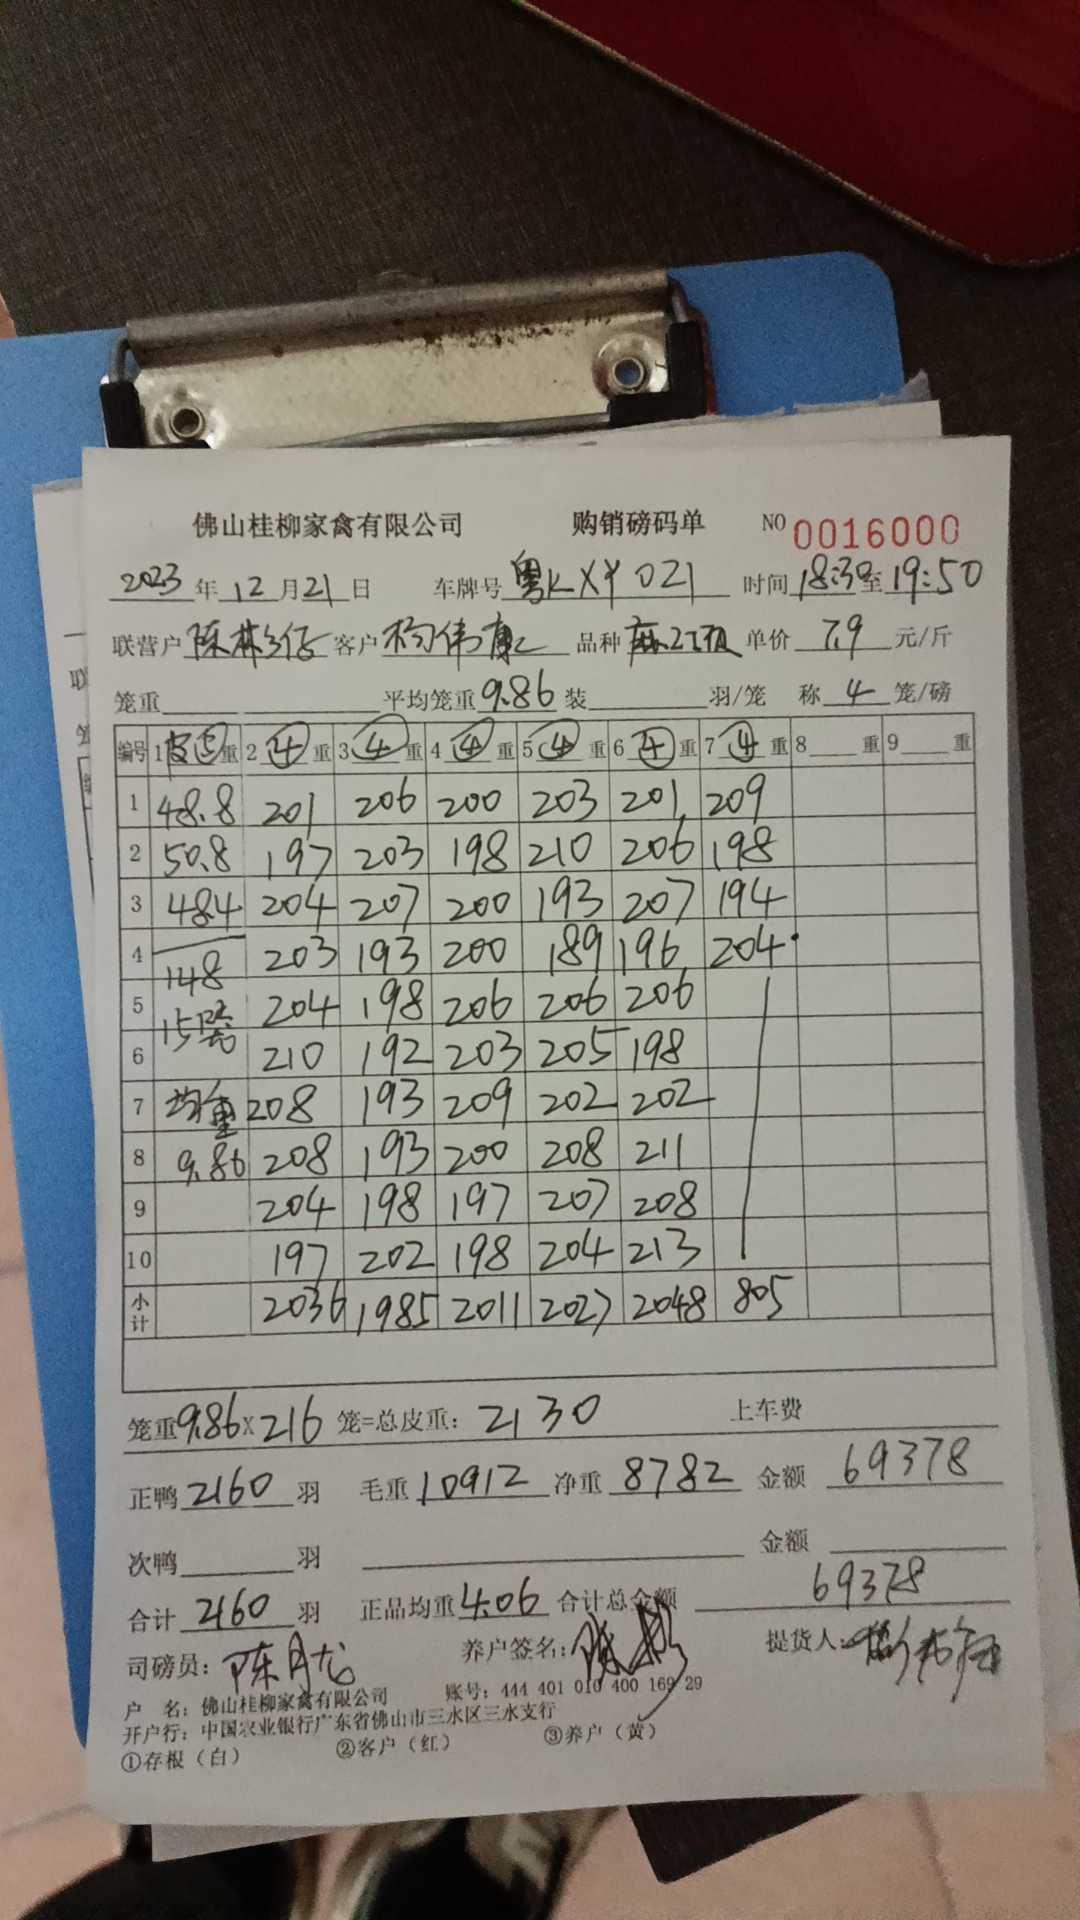 佛山桂柳家禽有限公司 购销磅码单 NO 0016000
2023年12月21日 车牌号 粤KXY021 时间 18:30至19:50
联营户 陈彬仔 客户 杨伟康 品种 单价 7.9 元/斤
笼重 平均笼重 9.86 装 羽/笼 称 4 笼/磅
编号 1 重 2 ④ 重 3 ④ 重 4 ④ 重 5 ④ 重 6 ④ 重 7 ④ 重 8 重 9 重
1 48.8 201 206 200 203 201 209
2 50.8 197 203 198 210 206 198
3 48.4 204 207 200 193 207 194
4 148 203 193 200 189 196 204
5 15笼 204 198 206 206 206
6 210 192 203 205 198
7 均重 208 193 209 202 202
8 9.86 208 193 200 208 211
9 204 198 197 207 208
10 197 202 198 204 213
小计 2036 1985 2011 2027 2048 805
笼重 9.86×216 笼=总皮重: 2130 上车费
正鸭 2160 羽 毛重 10912 净重 8782 金额 69378
次鸭 羽 金额
合计 2160 羽 正品均重 4.06 合计总金额 69378
司磅员: 陈月龙 养户签名: 陈彬 提货人:
户 名: 佛山桂柳家禽有限公司 账号: 444 401 010 400 169 29
开户行: 中国农业银行广东省佛山市三水区三水支行
①存根（白） ②客户（红） ③养户（黄）